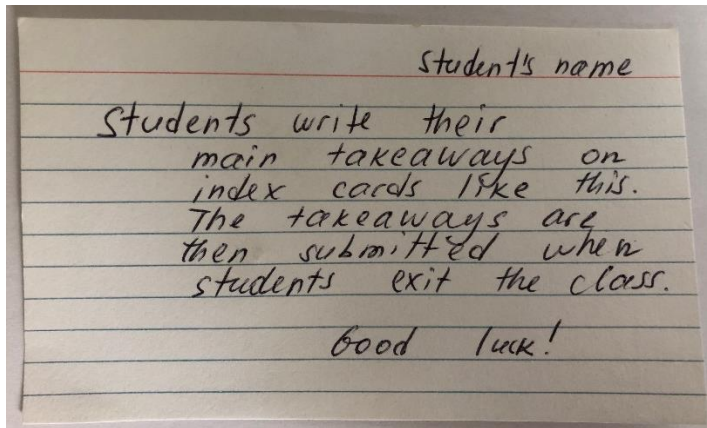 Student's name
Students write their
main takeaways on
index cards like this.
The takeaways are
then submitted when
students exit the class.
Good luck!